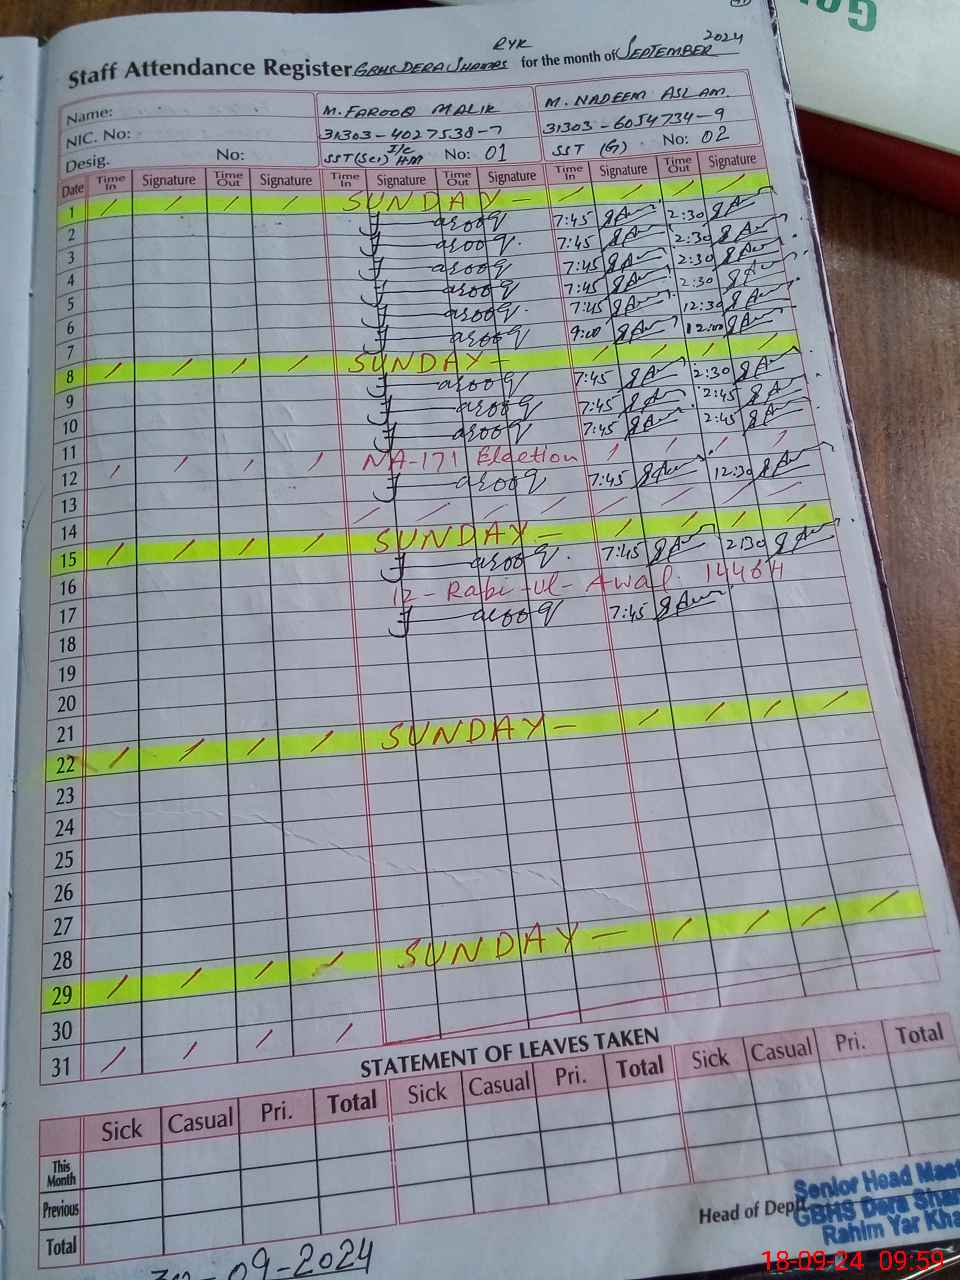 RYK 2024
Staff Attendance Register GBHS DERA SHAMAS for the month of SEPTEMBER
Name: M. FAROOQ MALIK M. NADEEM ASLAM.
NIC. No: 31303-4027538-7 31303-6054734-9
Desig. No: SST(Sci) I/C HM No: 01 SST (G) No: 02
Date Time In Signature Time Out Signature Time In Signature Time Out Signature Time In Signature Time Out Signature
1 / / / / SUNDAY - / / / /
2 Farooq 7:45 2:30
3 Farooq 7:45 2:30
4 Farooq 7:45 2:30
5 Farooq 7:45 2:30
6 Farooq 7:45 12:30
7 Farooq 9:00 12:00
8 / / / / SUNDAY - / / / /
9 Farooq 7:45 2:30
10 Farooq 7:45 2:45
11 Farooq 7:45 2:45
12 / / / / NA-171 Election / / / /
13 Farooq 7:45 12:30
14 / / / / / / / /
15 / / / / SUNDAY - / / / /
16 Farooq 7:45 2:30
17 12-Rabi-ul-Awal 1446H
18 Farooq 7:45
19
20
21
22 / / / / SUNDAY - / / / /
23
24
25
26
27
28
29 / / / / SUNDAY - / / / /
30
31 / / / /
STATEMENT OF LEAVES TAKEN
Sick Casual Pri. Total Sick Casual Pri. Total Sick Casual Pri. Total
This Month
Previous
Total
Head of Dept.
Senior Head Mast
GBHS Dera Sham
Rahim Yar Kha
-09-2024
18-09-24 09:59